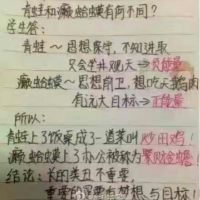 青蛙和癞蛤蟆有何不同?
学生答:
青蛙~思想保守,不知进取
只会坐井观天→负能量
癞蛤蟆~思想前卫,想吃天鹅肉
有远大目标→正能量
所以:
青蛙上了饭桌成了一道菜叫炒田鸡!
癞蛤蟆上了办公被称为聚财金蟾!
结论:长的美丑不重要,
重要的是要有梦想与目标!